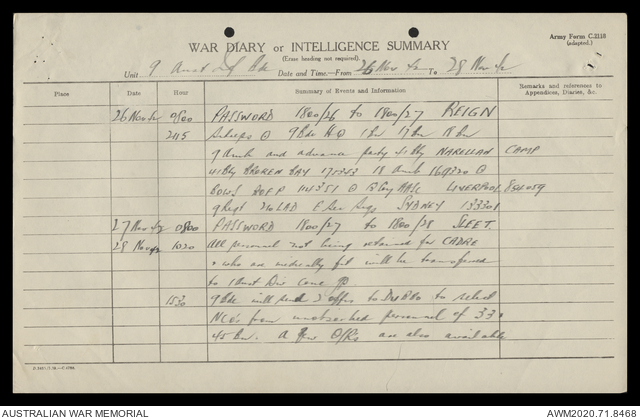 Army Form C.2118
(adapted.)
WAR DIARY or INTELLIGENCE SUMMARY
(Erase heading not required).
Unit 9 Aust Inf Bde Date and Time—From 26 Nov To 28 Nov
Place Date Hour Summary of Events and Information Remarks and references to Appendices, Diaries, &c.
26 Nov 0800 PASSWORD 1800/26 to 1800/27 REIGN
9 Bde HQ 1 Bn 17 Bn 18 Bn
9 and advance party NARELLAN CAMP
BROKEN BAY 171353 18 169320
BOWS 141351 LIVERPOOL
LAD E Sec Sigs SYDNEY
27 Nov 0800 PASSWORD 1800/27 to 1800/28 SLEET
28 Nov 1020 All personnel not being retained for CADRE
who are medically fit will be transferred
to 1 Aust Div
1530 9 Bde will send 2 offrs to DUBBO to select
NCOs from unabsorbed personnel of 33
45 Bn. A few Offrs are also available
AUSTRALIAN WAR MEMORIAL AWM2020.71.8468